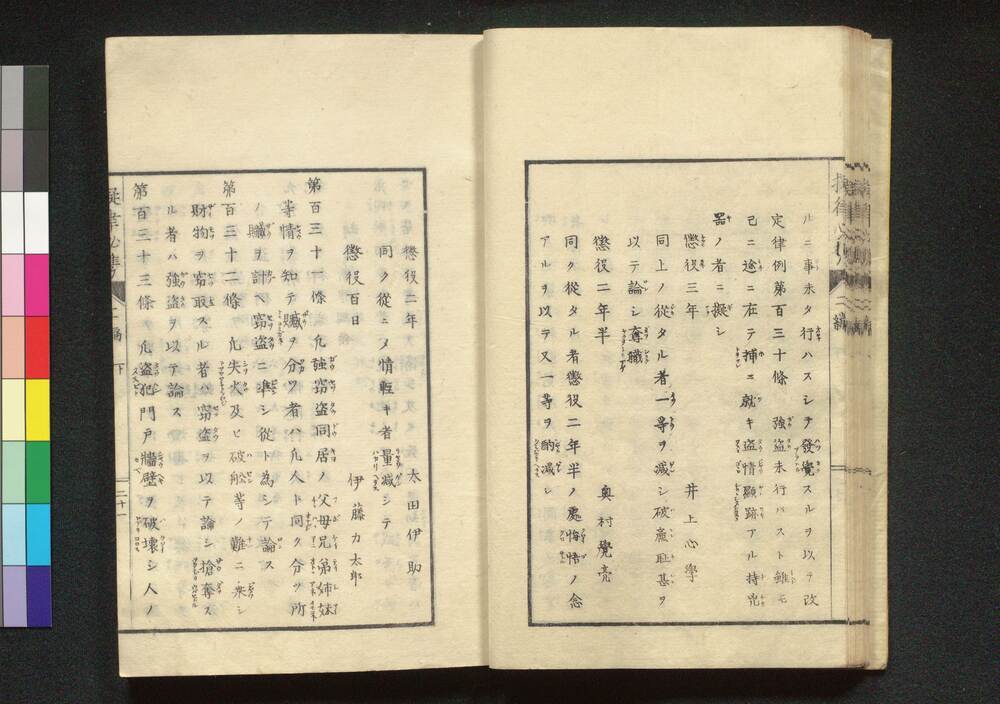 ルニ事未タ行ハスシテ發覺スルヲ以テ改
定律例第百三十條強盗未行ハスト雖モ
已ニ途ニ在テ捕ニ就キ盗情顯跡アル持兇
器ノ者ニ擬シ
懲役三年 井上心學
同上ノ從タル者一等ヲ減シ破廉耻甚ヲ
以テ論シ奪職
懲役二年半 奥村覺亮
同ク從タル者懲役二年半ノ處悔悟ノ念
アルヲ以テ又一等ヲ酌減シ
懲役二年 太田伊助
同ク從ニメ情輕キ者量減シテ
懲役百日 伊藤力太郎
第百三十一條凢強窃盗同居ノ父母兄弟姉妹
等情ヲ知テ贓ヲ分ツ者ハ凢人ト同ク分ツ所
ノ贓ヲ計ヘ窃盗ニ準シ從ト為シテ論ス
第百三十二條凢失火及ヒ破舩等ノ難ニ乗シ
財物ヲ窃取スル者ハ窃盗ヲ以テ論シ搶奪ス
ル者ハ強盗ヲ以テ論ス
第百三十三條凢盗犯門戸牆壁ヲ破壊シ人ノ
二編 下 二十一